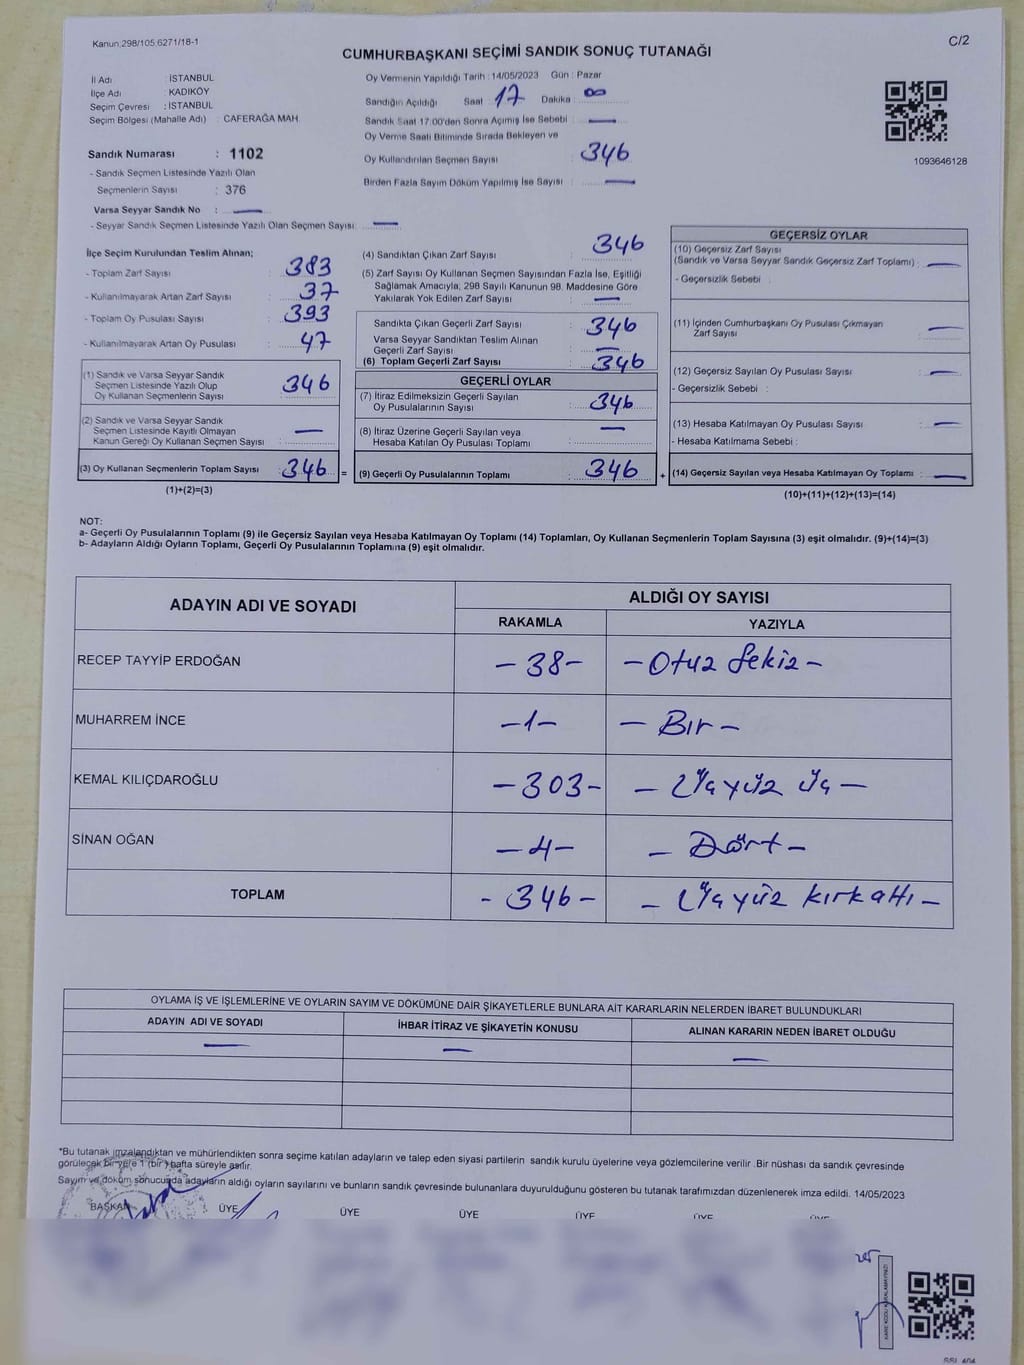 Kanun;298/105,6271/18-1
C/2
CUMHURBAŞKANI SEÇİMİ SANDIK SONUÇ TUTANAĞI
İl Adı : İSTANBUL
İlçe Adı : KADIKÖY
Seçim Çevresi : İSTANBUL
Seçim Bölgesi (Mahalle Adı) : CAFERAĞA MAH.
Sandık Numarası : 1102
- Sandık Seçmen Listesinde Yazılı Olan
Seçmenlerin Sayısı : 376
Varsa Seyyar Sandık No : —
- Seyyar Sandık Seçmen Listesinde Yazılı Olan Seçmen Sayısı: —
Oy Vermenin Yapıldığı Tarih : 14/05/2023 Gün : Pazar
Sandığın Açıldığı Saat : 17 Dakika : 00
Sandık Saat 17:00'den Sonra Açımış İse Sebebi : —
Oy Verme Saati Bitiminde Sırada Bekleyen ve
Oy Kullandırılan Seçmen Sayısı : 346
Birden Fazla Sayım Döküm Yapılmış İse Sayısı : —
1093646128
İlçe Seçim Kurulundan Teslim Alınan;
- Toplam Zarf Sayısı : 383
- Kullanılmayarak Artan Zarf Sayısı : 37
- Toplam Oy Pusulası Sayısı : 393
- Kullanılmayarak Artan Oy Pusulası : 47
(1) Sandık ve Varsa Seyyar Sandık
Seçmen Listesinde Yazılı Olup
Oy Kullanan Seçmenlerin Sayısı : 346
(2) Sandık ve Varsa Seyyar Sandık
Seçmen Listesinde Kayıtlı Olmayan
Kanun Gereği Oy Kullanan Seçmen Sayısı : —
(3) Oy Kullanan Seçmenlerin Toplam Sayısı : 346 =
(1)+(2)=(3)
(4) Sandıktan Çıkan Zarf Sayısı : 346
(5) Zarf Sayısı Oy Kullanan Seçmen Sayısından Fazla İse, Eşitliği
Sağlamak Amacıyla, 298 Sayılı Kanunun 98. Maddesine Göre
Yakılarak Yok Edilen Zarf Sayısı : —
Sandıkta Çıkan Geçerli Zarf Sayısı : 346
Varsa Seyyar Sandıktan Teslim Alınan
Geçerli Zarf Sayısı : —
(6) Toplam Geçerli Zarf Sayısı : 346
GEÇERLİ OYLAR
(7) İtiraz Edilmeksizin Geçerli Sayılan
Oy Pusulalarının Sayısı : 346
(8) İtiraz Üzerine Geçerli Sayılan veya
Hesaba Katılan Oy Pusulası Toplamı : —
(9) Geçerli Oy Pusulalarının Toplamı : 346 +
GEÇERSİZ OYLAR
(10) Geçersiz Zarf Sayısı
(Sandık ve Varsa Seyyar Sandık Geçersiz Zarf Toplamı) : —
- Geçersizlik Sebebi :
(11) İçinden Cumhurbaşkanı Oy Pusulası Çıkmayan
Zarf Sayısı : —
(12) Geçersiz Sayılan Oy Pusulası Sayısı : —
- Geçersizlik Sebebi :
(13) Hesaba Katılmayan Oy Pusulası Sayısı : —
- Hesaba Katılmama Sebebi :
(14) Geçersiz Sayılan veya Hesaba Katılmayan Oy Toplamı : —
(10)+(11)+(12)+(13)=(14)
NOT:
a- Geçerli Oy Pusulalarının Toplamı (9) ile Geçersiz Sayılan veya Hesaba Katılmayan Oy Toplamı (14) Toplamları, Oy Kullanan Seçmenlerin Toplam Sayısına (3) eşit olmalıdır. (9)+(14)=(3)
b- Adayların Aldığı Oyların Toplamı, Geçerli Oy Pusulalarının Toplamına (9) eşit olmalıdır.
ADAYIN ADI VE SOYADI
ALDIĞI OY SAYISI
RAKAMLA YAZIYLA
RECEP TAYYİP ERDOĞAN -38- -Otuz Sekiz-
MUHARREM İNCE -1- - Bır -
KEMAL KILIÇDAROĞLU -303- - Üçyüz üç -
SİNAN OĞAN -4- - Dört -
TOPLAM - 346 - - Üçyüz kırkaltı -
OYLAMA İŞ VE İŞLEMLERİNE VE OYLARIN SAYIM VE DÖKÜMÜNE DAİR ŞİKAYETLERLE BUNLARA AİT KARARLARIN NELERDEN İBARET BULUNDUKLARI
ADAYIN ADI VE SOYADI İHBAR İTİRAZ VE ŞİKAYETİN KONUSU ALINAN KARARIN NEDEN İBARET OLDUĞU
— — —
*Bu tutanak imzalandıktan ve mühürlendikten sonra seçime katılan adayların ve talep eden siyasi partilerin sandık kurulu üyelerine veya gözlemcilerine verilir. Bir nüshası da sandık çevresinde
görülecek bir yere 1 (bir) hafta süreyle asılır.
Sayım ve döküm sonucunda adayların aldığı oyların sayılarını ve bunların sandık çevresinde bulunanlara duyurulduğunu gösteren bu tutanak tarafımızdan düzenlenerek imza edildi. 14/05/2023
BAŞKAN ÜYE ÜYE ÜYE ÜYE ÜYE ÜYE
KARE KODU KARALAMAYINIZ!